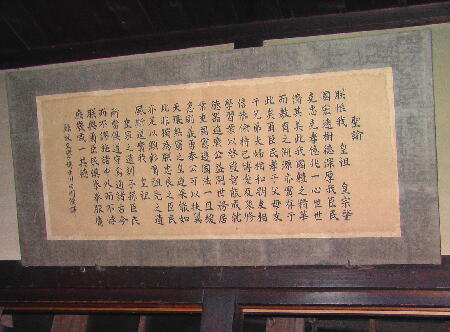 聖諭
朕惟我 皇祖 皇宗肇
國宏遠樹德深厚我臣民
克忠克孝億兆一心世世
濟其美此我國體之精華
而教育之淵源亦實存于
此矣爾臣民孝于父母友
于兄弟夫婦相和朋友相
信恭儉持己博愛及衆修
學習業以啟發智能成就
德器進廣公益開世務居
常重國憲遵國法一旦緩
急則義勇奉公可以扶翼
天壤無窮之皇運矣如
此非獨為朕忠良之臣民
亦足以顯彰爾祖先之遺
風斯道實我 皇祖
皇宗之遺訓子孫臣民
所當俱遵守焉通諸古今
而不謬施諸中外而不悖
朕與爾臣民俱拳拳服膺
庶幾咸一其德